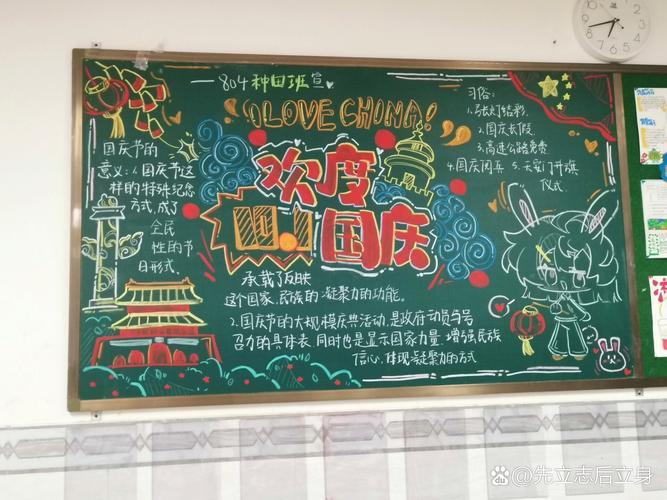 804种田班宣
I LOVE CHINA!
欢度
国庆
国庆节的
意义:1.国庆节这
样的特殊纪念
方式,成了
全民
性的节
日形式,
承载了反映
这个国家、民族的凝聚力的功能。
2.国庆节的大规模庆典活动,是政府动员与号
召力的具体表,同时也是显示国家力量、增强民族
信心,体现凝聚力的方式
习俗:
1.张灯结彩
2.国庆长假
3.高速公路免费
4.国庆阅兵 5.天安门升旗
仪式.
先立志后立身